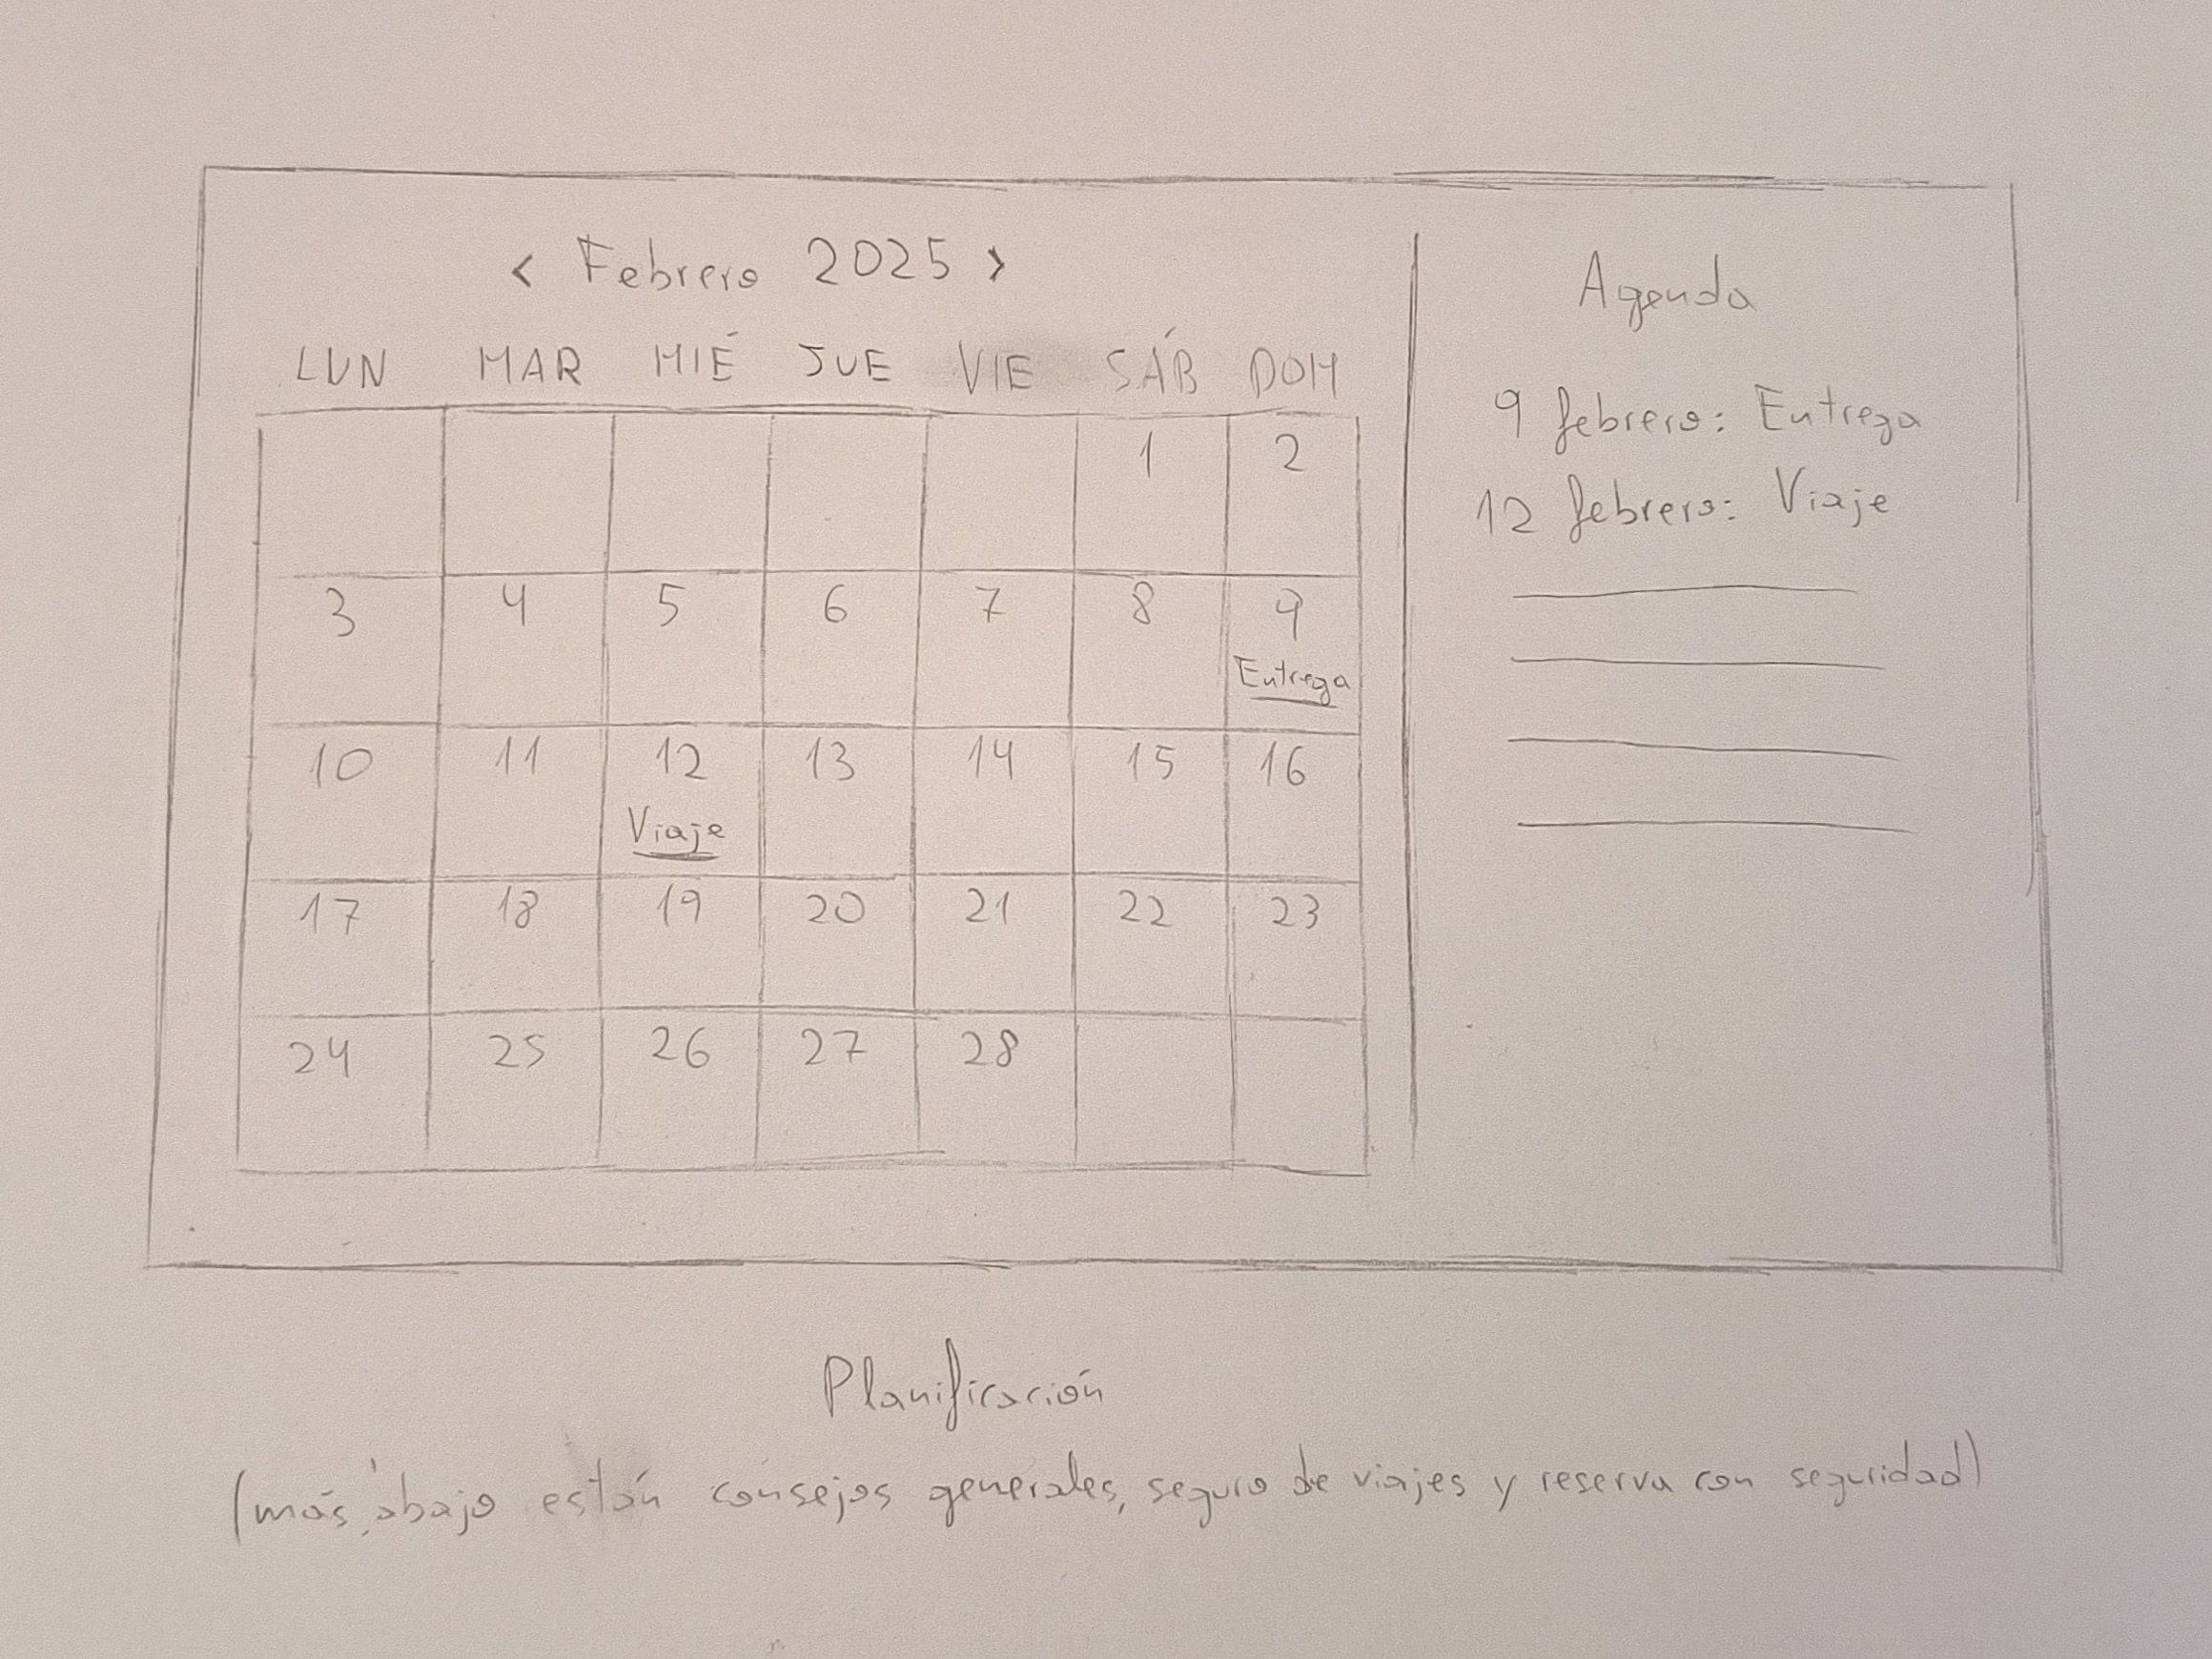 < Febrero 2025 >
LUN MAR MIÉ JUE VIE SÁB DOM
1 2
3 4 5 6 7 8 9
Entrega
10 11 12 13 14 15 16
Viaje
17 18 19 20 21 22 23
24 25 26 27 28
Agenda
9 febrero: Entrega
12 febrero: Viaje
Planificación
(más abajo están consejos generales, seguro de viajes y reserva con seguridad)